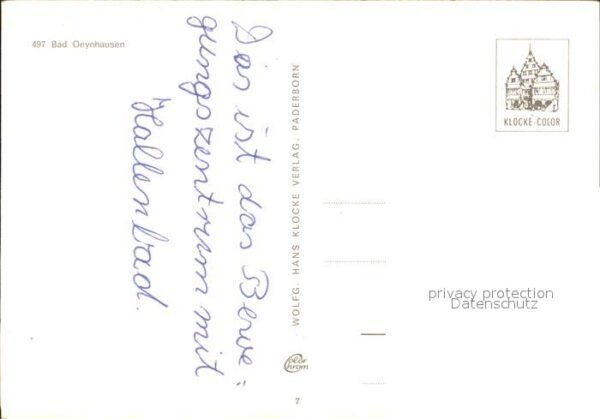 497 Bad Oeynhausen
Das ist das Bewe=
gungszentrum mit
Hallenbad.
WOLFG. HANS KLOCKE VERLAG, PADERBORN
KLOCKE-COLOR
privacy protection
Datenschutz
Color
chrom
7